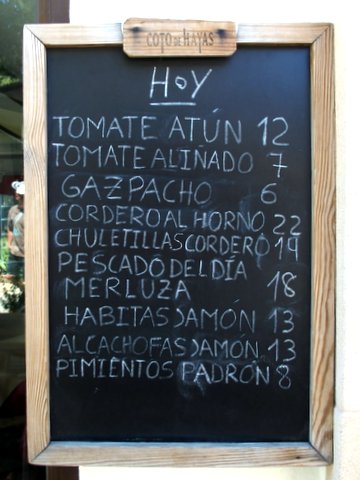 COTO DE HAYAS
HOY
TOMATE ATÚN 12
TOMATE ALIÑADO 7
GAZPACHO 6
CORDERO AL HORNO 22
CHULETILLAS CORDERO 19
PESCADO DEL DÍA
MERLUZA 18
HABITAS JAMÓN 13
ALCACHOFAS JAMÓN 13
PIMIENTOS PADRÓN 8